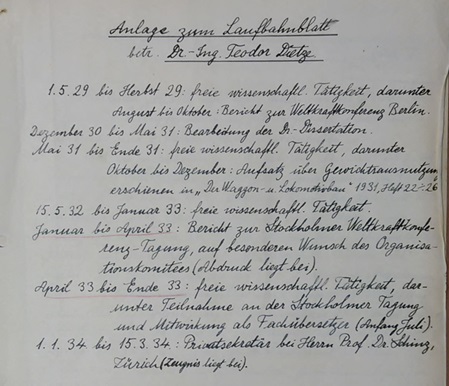 Anlage zum Laufbahnblatt
betr. Dr.-Ing. Teodor Dietze
1.5.29 bis Herbst 29: freie wissenschaftl. Tätigkeit, darunter
August bis Oktober: Bericht zur Weltkraftkonferenz Berlin.
Dezember 30 bis Mai 31: Bearbeitung der Dr.-Dissertation.
Mai 31 bis Ende 31: freie wissenschaftl. Tätigkeit, darunter
Oktober bis Dezember: Aufsatz über Gewichtausnutzung
erschienen in „Der Waggon- u. Lokomotivbau" 1931, Heft 22-26
15.5.32 bis Januar 33: freie wissenschaftl. Tätigkeit.
Januar bis April 33: Bericht zur Stockholmer Weltkraftkonfe-
renz-Tagung, auf besonderen Wunsch des Organisa-
tionskomitees (Abdruck liegt bei).
April 33 bis Ende 33: freie wissenschaftl. Tätigkeit, dar-
unter Teilnahme an der Stockholmer Tagung
und Mitwirkung als Fachübersetzer (Anfang Juli).
1.1.34 bis 15.3.34: Privatsekretär bei Herrn Prof. Dr. Schinz,
Zürich (Zeugnis liegt bei).